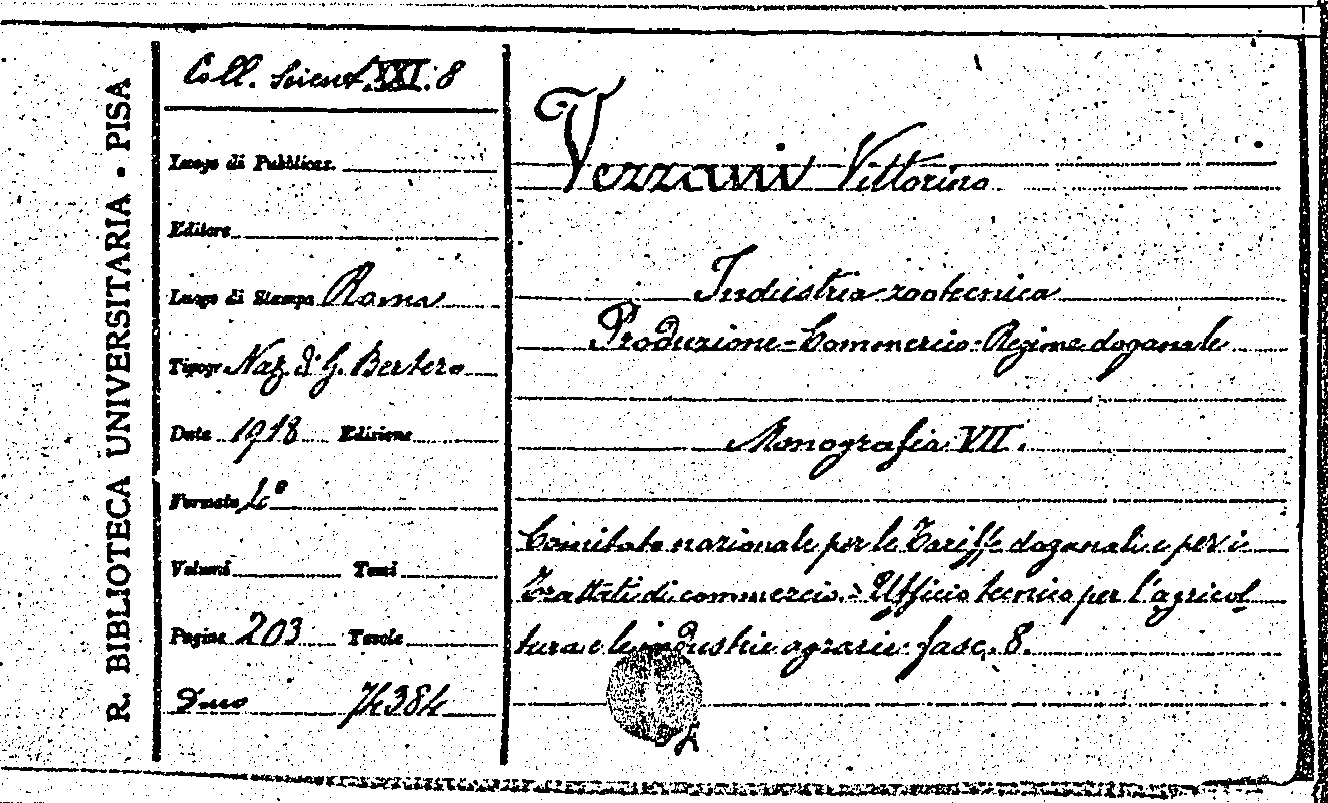 R. BIBLIOTECA UNIVERSITARIA · PISA
Coll. Scient. XXI. 8
Luogo di Pubblicaz.
Editore
Luogo di Stampa Roma
Tipogr. Naz. di G. Bertero
Data 1918 Edizione
Formato 4°
Volumi Tomi
Pagine 203 Tavole
Dono 74384
Vezzani Vittorino
Industria zootecnica
Produzione - Commercio - Regime doganale
Monografia VII.
Comitato nazionale per le Tariffe doganali e per i
Trattati di commercio. - Ufficio tecnico per l'agricol
tura e le industrie agrarie. fasc. 8.